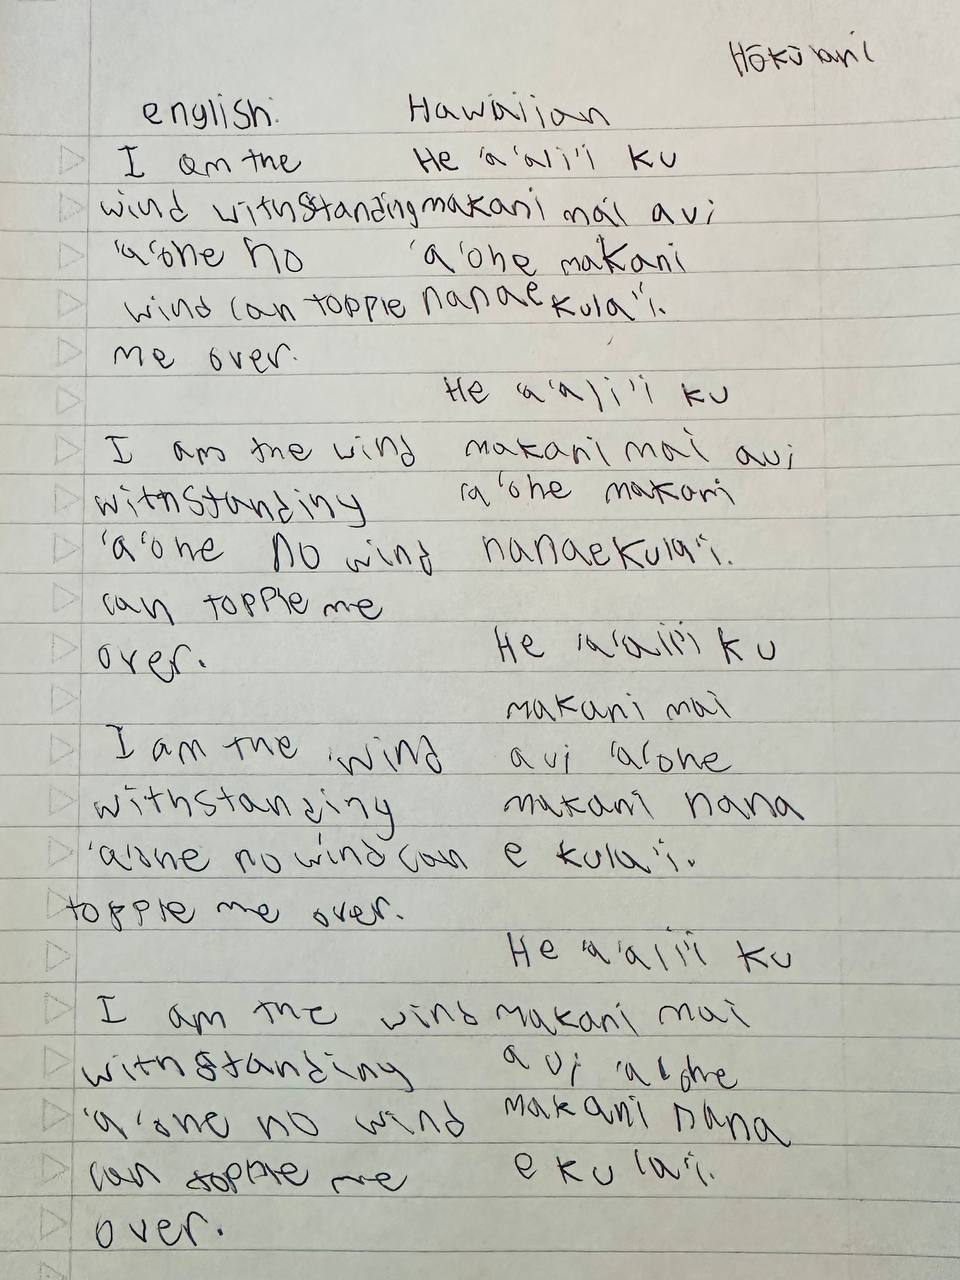 Hōkūlani
english: Hawaiian
I am the He 'a'ali'i ku
wind withstanding makani mai aui
'a'ohe no 'a'ohe makani
wind can topple nanae kula'i.
me over.
He a'ali'i ku
I am the wind makani mai aui
withstanding 'a'ohe makani
'a'ohe no wind nanae kula'i.
can topple me
over. He 'a'ali'i ku
makani mai
I am the wind aui 'a'ohe
withstanding makani nana
'a'ohe no wind can e kula'i.
topple me over.
He 'a'ali'i ku
I am the wind makani mai
withstanding aui 'a'ohe
'a'ohe no wind makani nana
can topple me e kula'i.
over.